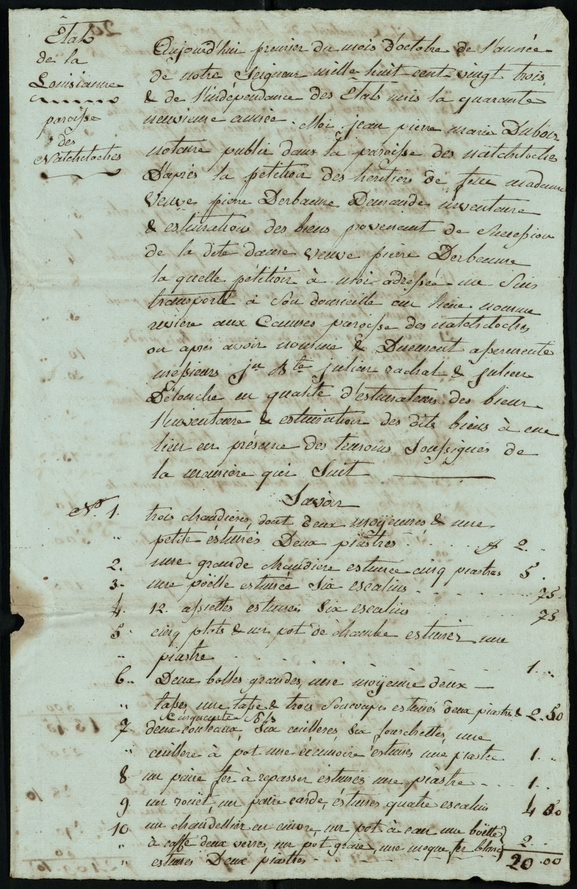 États
de la
Louisianne
paroisse
des
Natchitoches
Aujourd'hui premier du mois d'octobre de l'année
de notre Seigneur mille huit cent vingt trois,
& de l'indépendance des Etats unis la quarante
neuvieme année. Moi jean pierre marie Dubois
notaire public dans la paroisse des natchitoches
D'après la petition des heritiers de feue madame
Veuve pierre Derbanne Demande inventaire
& estimation des biens provenant de Succession
de la dite dame veuve pierre Derbanne
la quelle petition à moi adressée me Suis
transporté à Son domicille au lieu nommé
riviere aux Cannes paroisse des natchitoches
ou apres avoir nommé & Duement assermenté
messieurs jn Bte julien rachal & julien
en qualité d'estimateurs des biens
l'inventaire & estimation des dits biens à eue
lieu en presence des temoins Soussignés de
la maniere qui Suit
Savoir
No. 1. trois chaudieres, dont deux moyennes & une
" petite estimés Deux piastres 2 ..
2. une grande chaudiere estimée cinq piastres 5 .
3. une poelle estimée Six escalins 75
4 12 assiettes estimés Six escalins 75
5. cinq plats & un pot de chambre estimés une
" piastre 1 ..
6.. Deux bolles grandes, une moyenne deux
" tasses, une tasse & trois Soucoupes estimés deux piastres & 2.50
cinquante
7 deux couteaux, Six cuilleres Six fourchettes, une
" cuillere à pot une ecumoire estimés une piastre 1 ..
8 un paire fer à repasser estimés une piastre 1 ..
9 un rouet un paire carde, estimés quatre escalins 4 50
10 un chandellier en cuivre, un pot à eau une boëtte
" à caffé deux verres, un pot graisse, une moque fer blanc
" estimés Deux piastres 2 ..
20.00